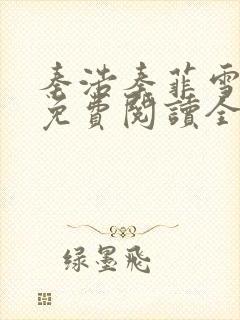 秦浩秦菲雪
免費閱讀全
绿墨飛